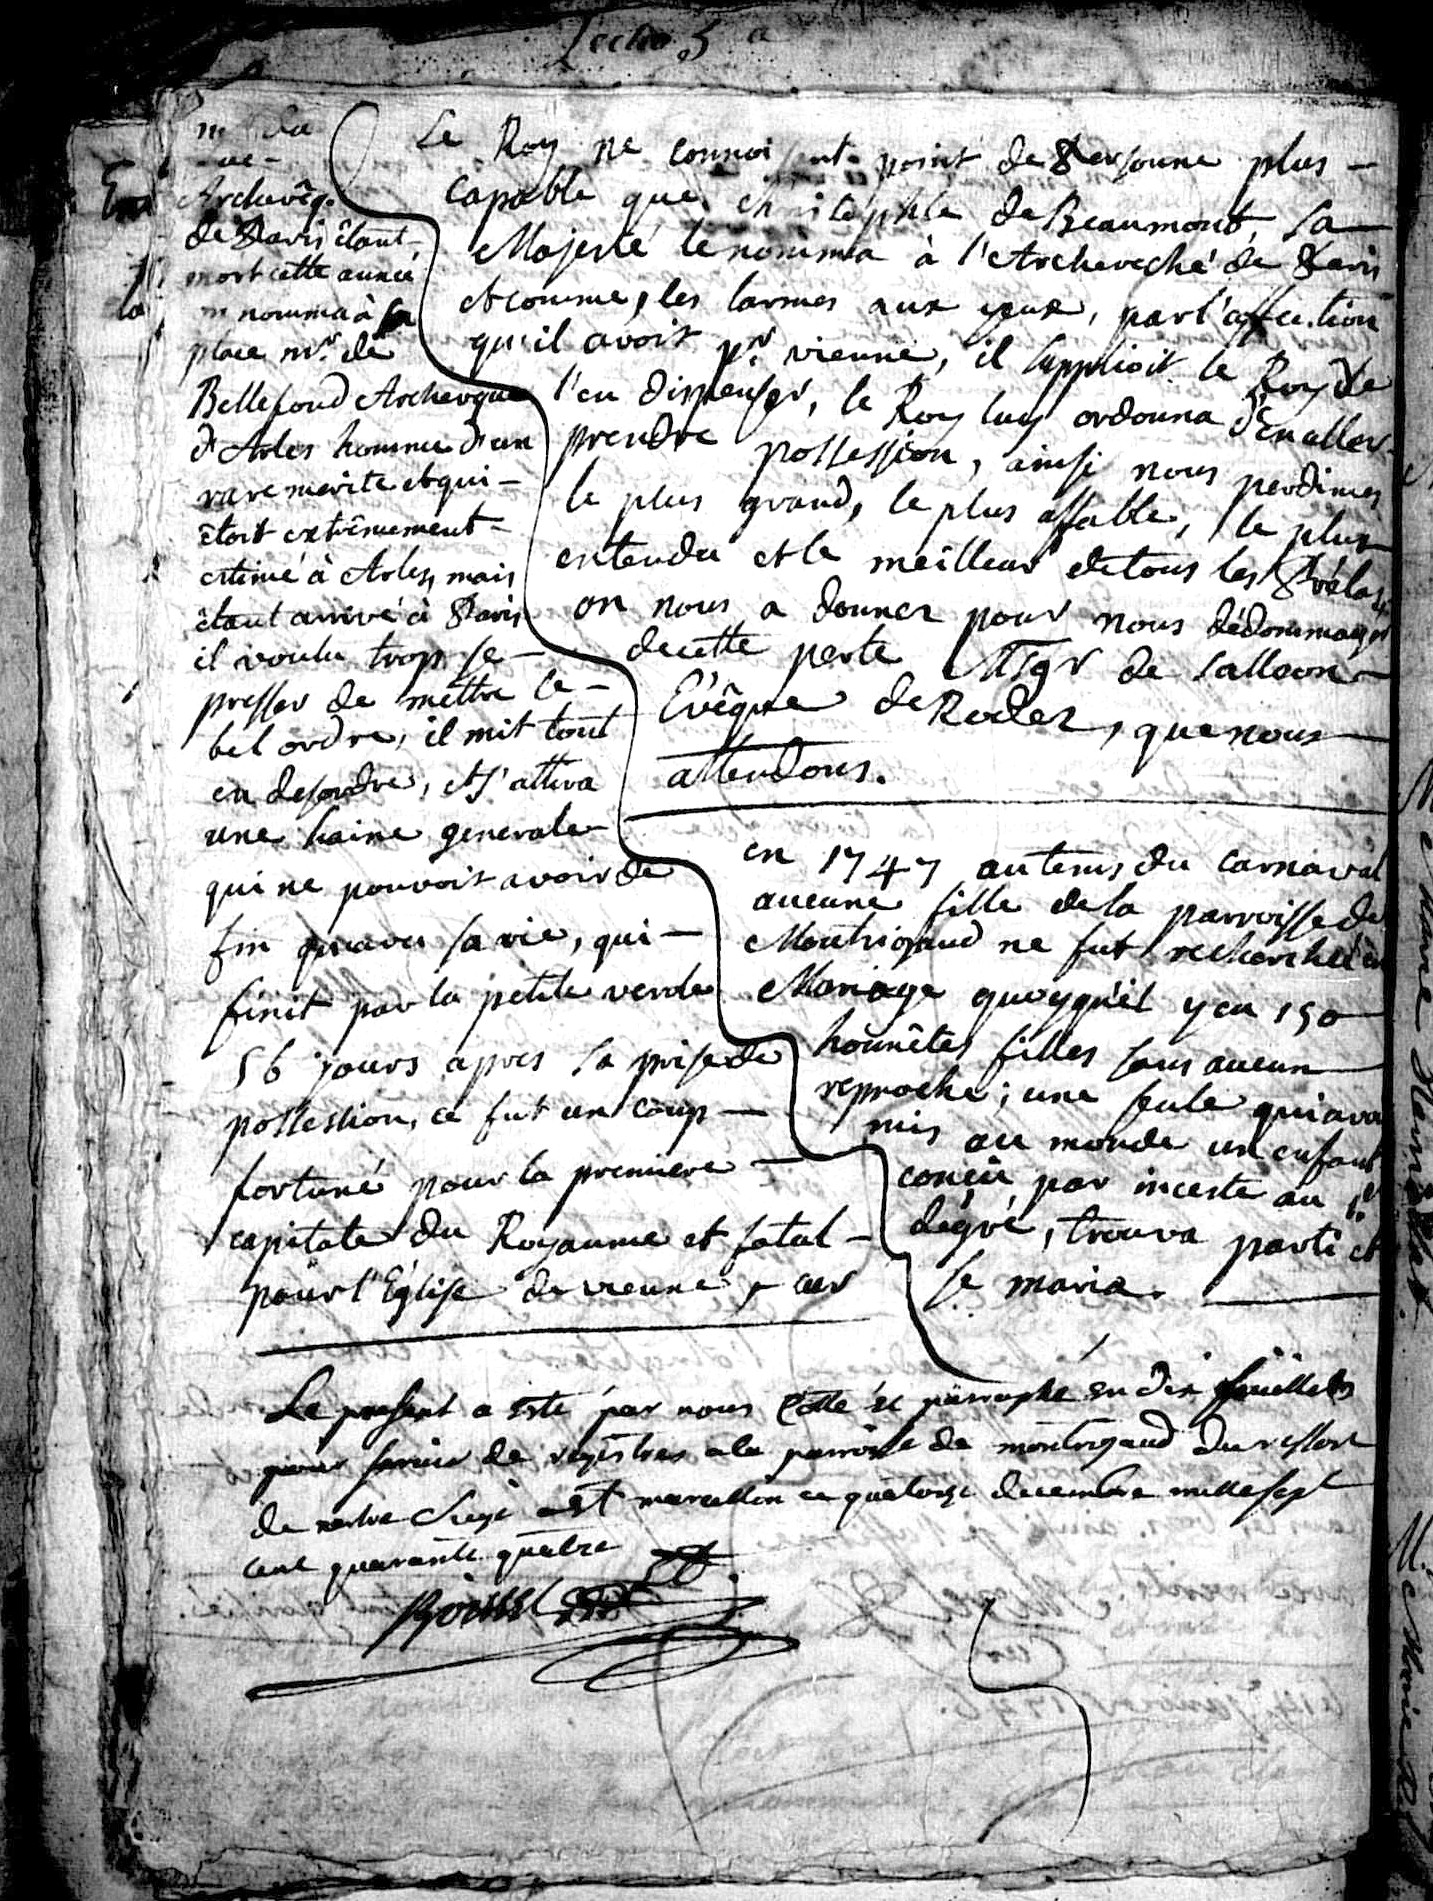 Lectio 5 a
Archevêq.
de Paris êtant
mort cette année
nomma à sa
place mr. de
Bellefond Archevque
d'Arles homme d'un
rare merite et qui
êtoit extrêmement
estimé à Arles, mais
êtant arrivé à Paris
il voulu trop se
presser de mettre le
bel ordre, il mit tout
en desordre, et s'attira
une haine generale
qui ne pouvoit avoir de
fin qu'avec sa vie, qui
finit par la petite verole
56 jours apres sa prise de
possession, ce fut un coup
fortuné pour la premiere
capitale du Royaume et fatal
pour l'Eglise de vienne, car
Le Roy ne connoissant point de Personne plus
capable que christophle de Beaumont, sa
Majesté le nomma à l'Archeveché de Paris
et comme, les larmes aux yeux, par l'affection
qu'il avoit pr vienne, il supplioit le Roy de
l'en dispenser, le Roy luy ordonna d'en aller
prendre possession, ainsi nous perdimes
le plus grand, le plus affable, le plus
entendu et le meilleur de tous les Prélats,
on nous a donner pour nous dédommager
de cette perte Msgr de Salleon
Evêque de Rodez, que nous
attendons.
en 1747 au tems du carnaval
aucune fille de la parroisse de
Montrigaud ne fut recherchée en
Mariage quoyqu'il y eu 150
honnêtes filles sans aucun
reproche; une seule qui avoi
mis au monde un enfant
conçü par inceste au
dégré, trouva parti et
se maria.
Le present a esté par nous Cotté et parraphé en dix feüillets
pour servir de registres a la parroisse de montrigaud du ressort
de nostre Siege a St marcellin ce quatorze decembre mille sept
cent quarante quatre